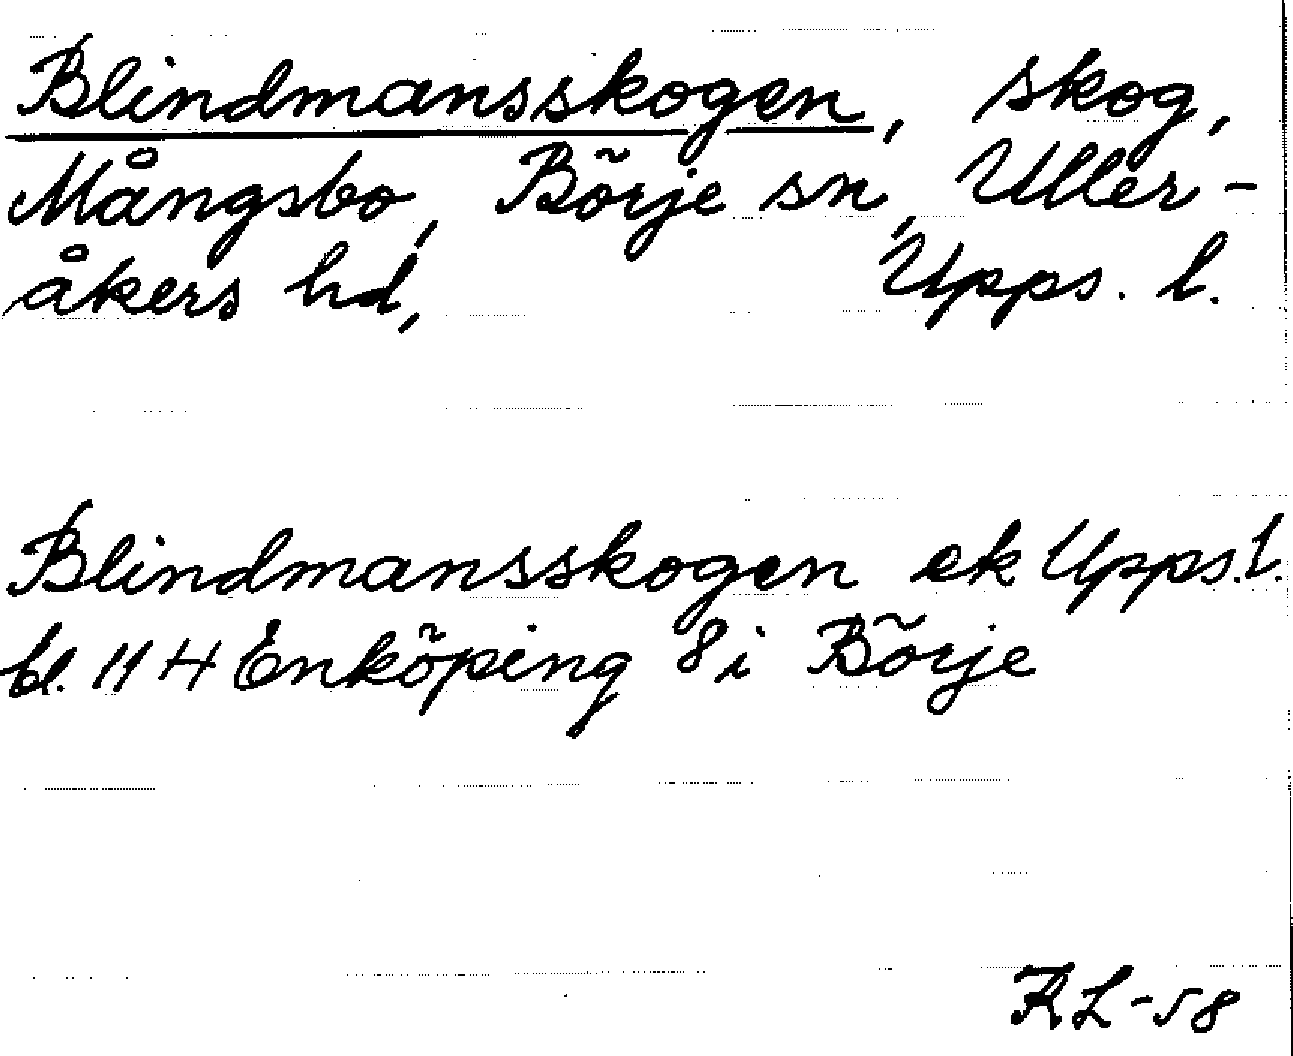 Blindmansskogen, skog,
Mångsbo, Börje sn, Uller-
åkers hd, Upps. l.
Blindmansskogen ek Upps. l.
bl. 114 Enköping 8i Börje
KL-58